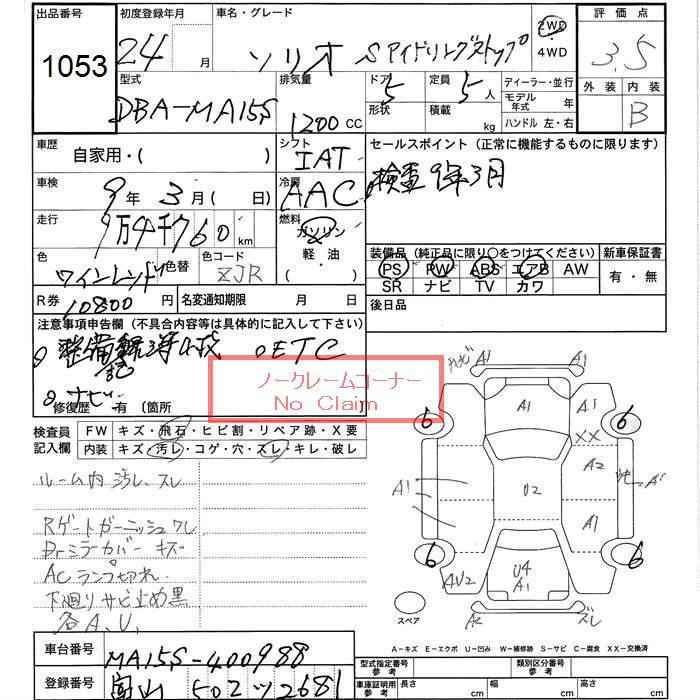 出品番号 初度登録年月 車名・グレード 評価点
1053 24 月 ソリオ Sアイドリングストップ 2WD ・ 4WD 3.5
型式 排気量 ドア 定員 ディーラー・並行 外装 内装
DBA-MA15S 1200 CC 5 5 人 モデル年式 年 B
形状 積載 kg ハンドル 左・右
車歴 シフト セールスポイント (正常に機能するものに限ります)
自家用・( ) IAT 検査 9年3月
車検 冷房
9 年 3 月 ( 日) AAC
走行 燃料
9万4千760 km ガソリン
軽・油
装備品 (純正品に限り○をつけてください) 新車保証書
色 色替 色コード PS PW ABS エアB AW 有・無
ワインレッド ZJR SR ナビ TV カワ
R券 10800 円 名変通知期限 月 日 後日品
注意事項申告欄 (不具合内容等は具体的に記入して下さい)
整備 記 OETC
ナビ
ノークレームコーナー
No Claim
修復歴 有 〔箇所 〕
検査員記入欄 FW キズ・飛石・ヒビ割・リペア跡・X要
内装 キズ・汚レ・コゲ・穴・スレ・キレ・破レ
ルーム内 汚レ、スレ
Rゲートガーニッシュ ワレ
Drミラーカバー キズ
ACランプ切れ
下廻りサビ止め黒
各A、U、
A1
A1 A1
6 6
XX
A2
A1 U2 A1
6 6
AU2 U4 A1
スペア スレ
A－キズ E－エクボ U－凹み W－補修跡 S－サビ C－腐食 XX－交換済
車台番号 MA15S-400988 型式指定番号 参考 類別区分番号 参考
登録番号 富山 502 ツ 2681 車庫証明用 参考 長さ cm 幅 cm 高さ cm